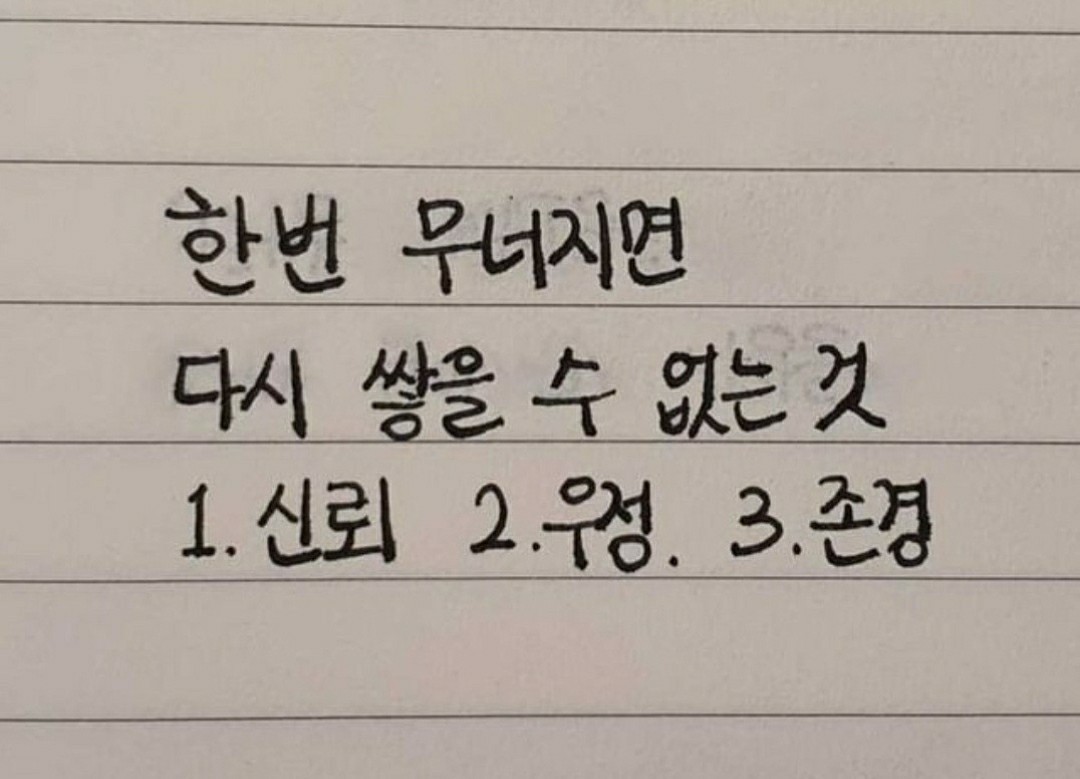 한번 무너지면
다시 쌓을 수 없는 것
1. 신뢰 2. 우정. 3. 존경